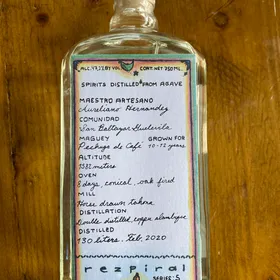 ALC. 47.3% BY VOL. CONT. NET. 750ML.
SPIRITS DISTILLED FROM AGAVE
MAESTRO ARTESANO
Aureliano Hernandez
COMUNIDAD
San Baltazar Guelavila
MAGUEY GROWN FOR
Pechuga de Café 10-12 years
ALTITUDE
meters
OVEN
8 days, conical, oak fired
MILL
Horse drawn tahona
DISTILLATION
Double distilled, copper alembique
DISTILLED
130 liters. Feb, 2020
rezpiral
SERIES: S